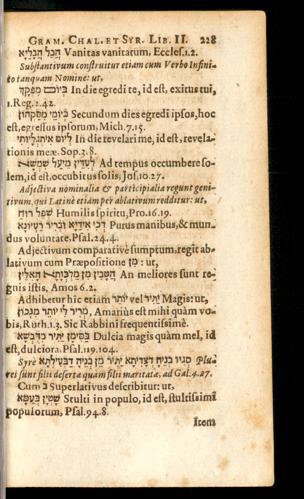 GRAM. CHAL. ET SYR. LIB. II. 228
הֲבֵל הַבְלַיָּא Vanitas vanitatum, Eccles.1.2.
Substantivum construitur etiam cum Verbo Infini-
to tanquam Nomine: ut,
בְּיוֹם מִפְּקָךְ In die egredi te, id est, exitus tui,
1.Reg.2.42.
בְּיוֹמֵי מִפַּקְהוֹן Secundum dies egredi ipsos, hoc
est, egressus ipsorum, Mich.7.15.
לְיוֹם אִתְגְּלָיוּתִי In die revelari me, id est, revela-
tionis meæ. Sop.3.8.
לְעִדָּן מֵיעַל שִׁמְשָׁא Ad tempus occumbere so-
lem, id est, occubitus solis, Jos.10.27.
Adjectiva nominalia & participialia regunt geni-
tivum, qui Latinè etiam per ablativum redditur: ut,
שְׁפַל רוּחַ Humilis spiritu, Pro.16.19.
דְּכֵי אִידַיָּא וּבְרִיר רַעְיוֹנָא Purus manibus, & mun-
dus voluntate. Psal.24.4.
Adjectivum comparativè sumptum, regit ab-
lativum cum Præpositione מִן: ut,
הֲטָבִין מִן מַלְכְוָתָא הָאִלֵּין An meliores sunt re-
gnis istis, Amos 6.2.
Adhibetur hîc etiam יוֹתֵר vel יַתִּיר Magis: ut,
מְרִיר לִי יוֹתֵר מִנְּכוֹן Amarius est mihi quàm vo-
bis, Ruth.1.3. Sic Rabbini frequentissimè.
בַּסִּימִין יַתִּיר מִדּוּבְשָׁא Dulcia magis quàm mel, id
est, dulciora. Psal.119.104.
Syrè סְגִיו בְּנֶיהָ דְּצָדִיתָא יַתִּיר מִן בְּנֶיהָ דִּבְעִילְתָּא Plu-
res sunt filii desertæ quam filii maritatæ, ad Gal.4.27.
Cum בְּ Superlativus describitur: ut,
שָׁטִין בְּעַמָּא Stulti in populo, id est, stultissimi
populorum, Psal.94.8.
Item